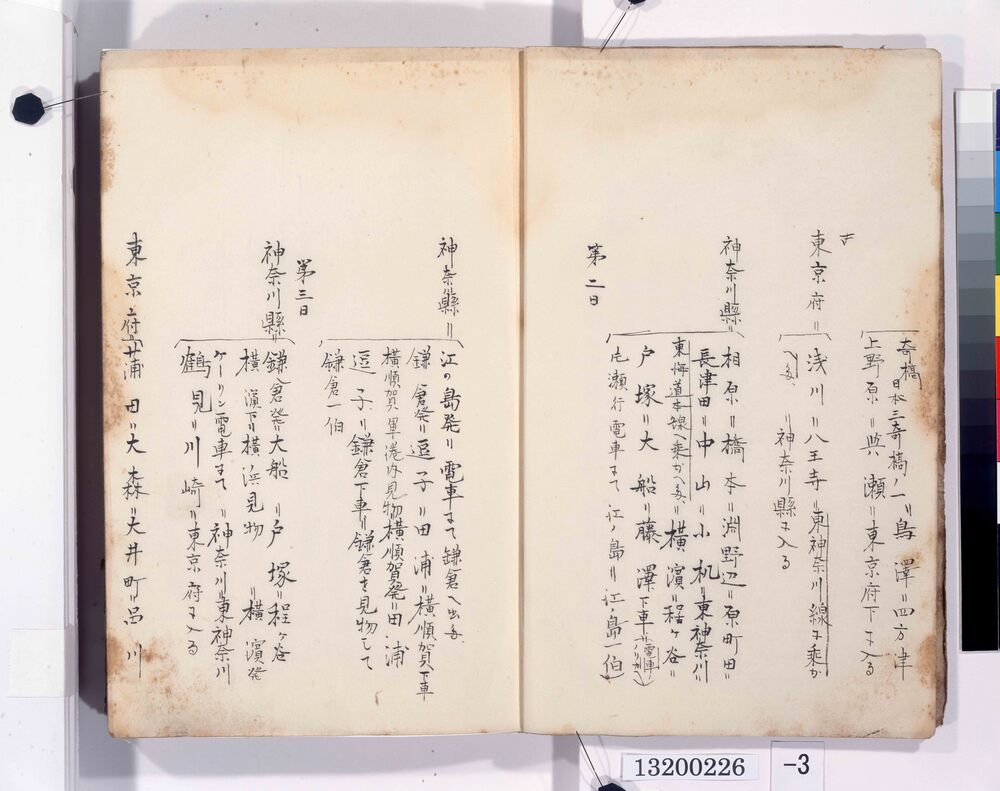 奇橋 日本三奇橋ノ一〃鳥澤〃四方津
上野原〃與瀬〃東京府下ニ入る
東京府〃
浅川〃八王寺〃東神奈川線ニ乗か
へる 〃神奈川縣ニ入る
神奈川縣〃
相原〃橋本〃淵野辺〃原町田〃
長津田〃中山〃小机〃東神奈川〃
東海道本線へ乗かへる〃横濱〃程ヶ谷〃
戸塚〃大船〃藤澤下車(電車ノリカヘ)
片瀬行電車にて江ノ島〃江ノ島一伯)
第二日
神奈縣〃
江の島発〃電車にて鎌倉へ出る
鎌倉発〃逗子〃田浦〃横順賀下車
横順賀軍港内見物横順賀発〃田浦
逗子〃鎌倉下車〃鎌倉を見物して
鎌倉一伯
第三日
神奈川縣〃
鎌倉発〃大船〃戸塚〃程ヶ谷
横濱下〃横浜見物〃横濱発
ケーヒン電車にて〃神奈川〃東神奈川
鶴見〃川崎〃東京府ニ入る
東京府〃蒲田〃大森〃大井町〃品川
13200226
-3